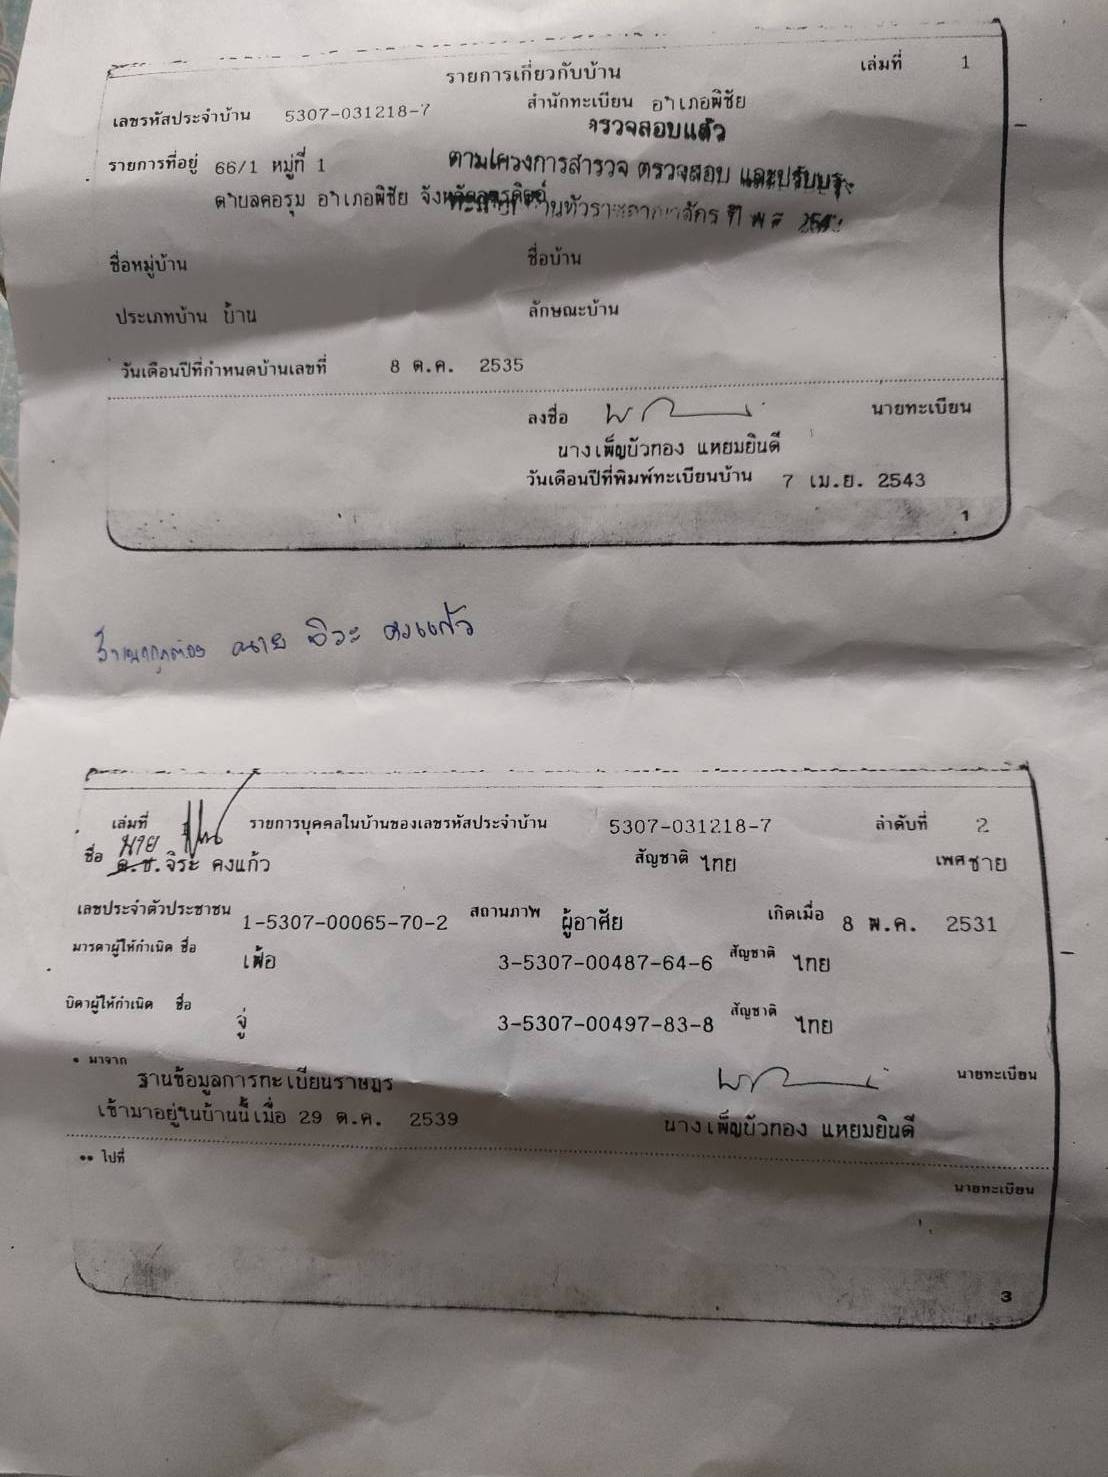 เล่มที่ 1
รายการเกี่ยวกับบ้าน
เลขรหัสประจำบ้าน 5307-031218-7 สำนักทะเบียน อำเภอพิชัย
ตรวจสอบแล้ว
รายการที่อยู่ 66/1 หมู่ที่ 1 ตามโครงการสำรวจ ตรวจสอบ และปรับปรุง
ตำบลคอรุม อำเภอพิชัย จังหวัดอุตรดิตถ์
ชื่อหมู่บ้าน ชื่อบ้าน
ประเภทบ้าน บ้าน ลักษณะบ้าน
วันเดือนปีที่กำหนดบ้านเลขที่ 8 ต.ค. 2535
ลงชื่อ นายทะเบียน
นางเพ็ญบัวทอง แหยมยินดี
วันเดือนปีที่พิมพ์ทะเบียนบ้าน 7 เม.ย. 2543
1
สำเนาถูกต้อง นาย จิระ คงแก้ว
เล่มที่ 1 รายการบุคคลในบ้านของเลขรหัสประจำบ้าน 5307-031218-7 ลำดับที่ 2
นาย
ชื่อ ด.ช.จิระ คงแก้ว สัญชาติ ไทย เพศ ชาย
เลขประจำตัวประชาชน 1-5307-00065-70-2 สถานภาพ ผู้อาศัย เกิดเมื่อ 8 พ.ค. 2531
มารดาผู้ให้กำเนิด ชื่อ เพ้อ 3-5307-00487-64-6 สัญชาติ ไทย
บิดาผู้ให้กำเนิด ชื่อ จู่ 3-5307-00497-83-8 สัญชาติ ไทย
* มาจาก
ฐานข้อมูลการทะเบียนราษฎร นายทะเบียน
เข้ามาอยู่ในบ้านนี้เมื่อ 29 ต.ค. 2539 นางเพ็ญบัวทอง แหยมยินดี
** ไปที่
นายทะเบียน
3